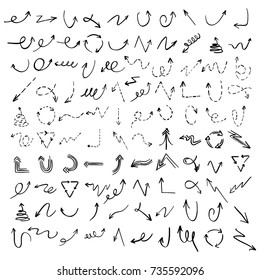 shutterstock.com · 735592096